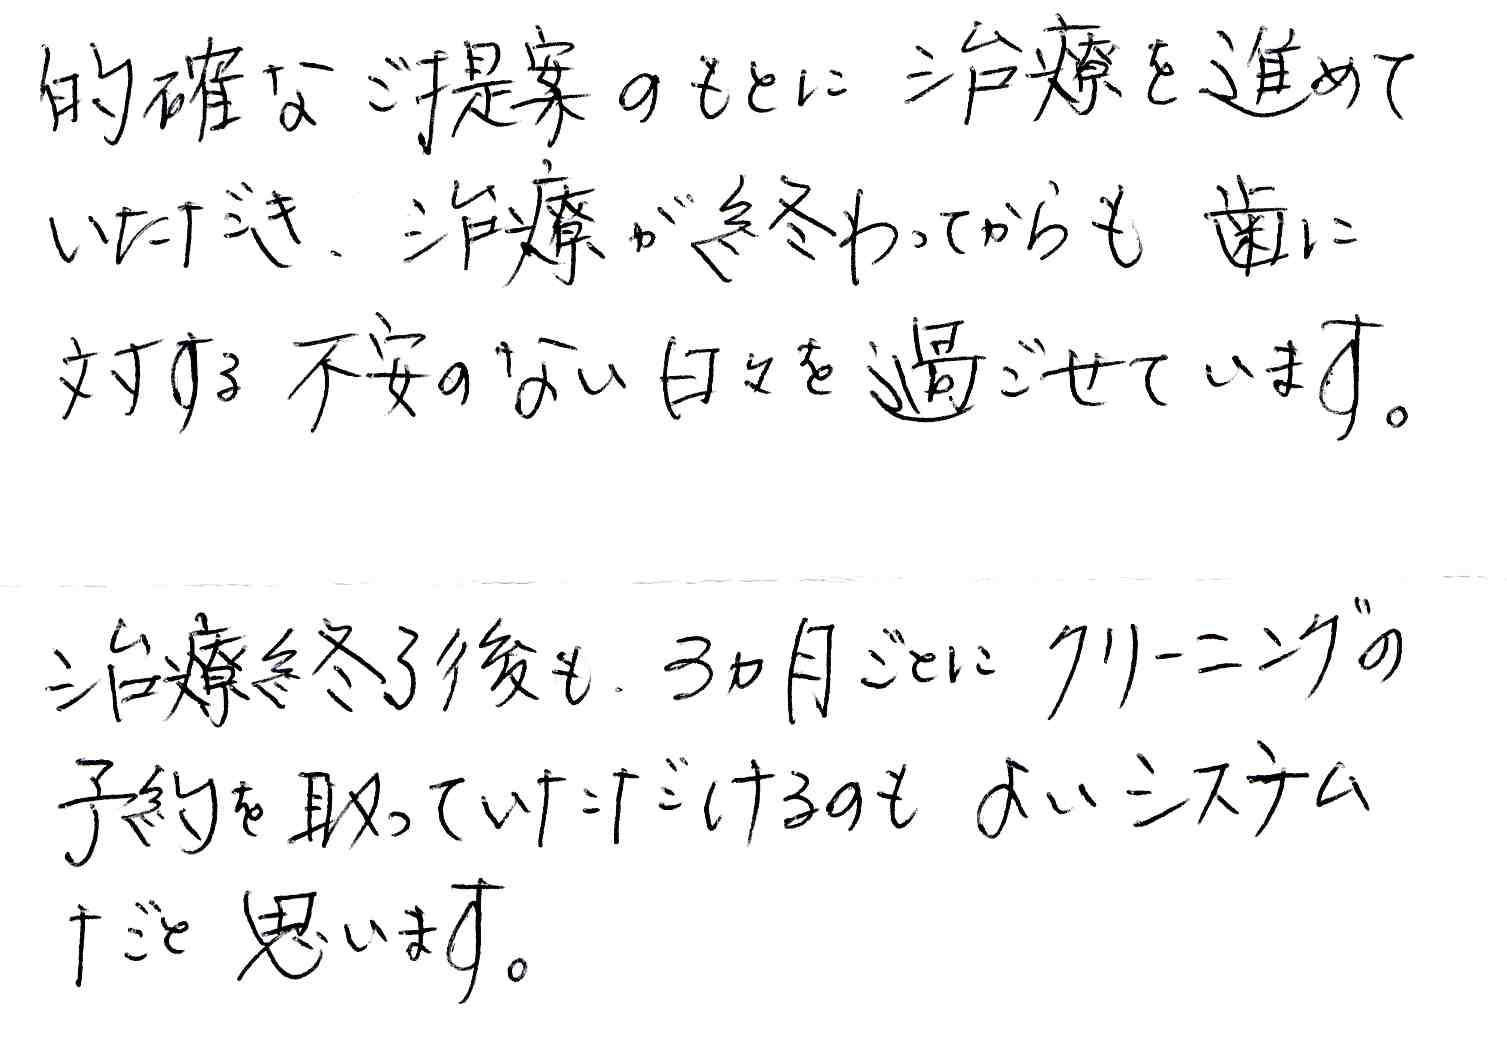 的確なご提案のもとに治療を進めて
いただき、治療が終わってからも歯に
対する不安のない日々を過ごせています。
治療終了後も、3ヵ月ごとにクリーニングの
予約を取っていただけるのもよいシステム
だと思います。